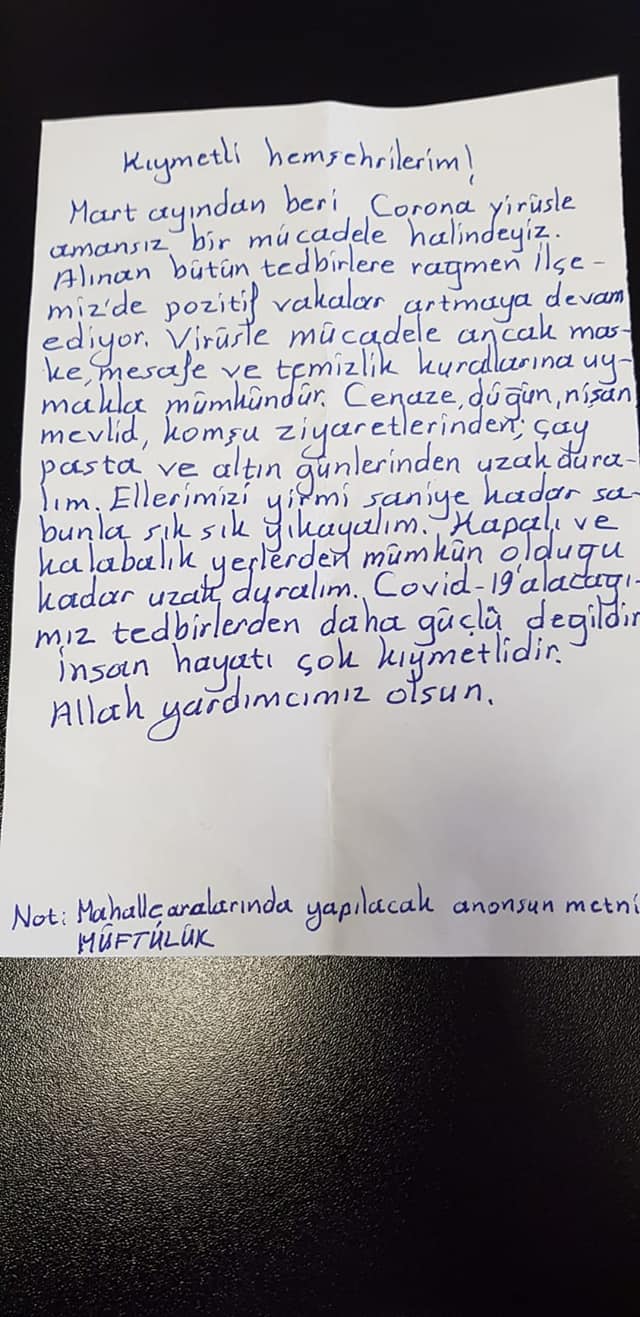 Kıymetli hemşehrilerim!
Mart ayından beri Corona virüsle
amansız bir mücadele halindeyiz.
Alınan bütün tedbirlere ragmen ilçe-
miz'de pozitif vakalar artmaya devam
ediyor. Virüsle mücadele ancak mas-
ke, mesafe ve temizlik kurallarına uy-
makla mümkündür. Cenaze, dügün, nişan,
mevlid, komşu ziyaretlerinden, çay
pasta ve altın günlerinden uzak dura-
lım. Ellerimizi yirmi saniye kadar sa-
bunla sık sık yıkayalım. Kapalı ve
kalabalık yerlerden mümkün oldugu
kadar uzak duralım. Covid-19 alacagı-
mız tedbirlerden daha güçlü degildir
insan hayatı çok kıymetlidir.
Allah yardımcımız olsun.
Not: Mahalle aralarında yapılacak anonsun metni
MÜFTÜLÜK